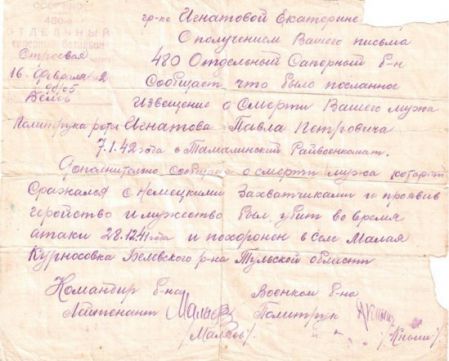 480-й
ОТДЕЛЬНЫЙ
Строевая
16 февраля 2
гр-ке Игнатовой Екатерине
С получением Вашего письма
480 Отдельный Саперный б-н
Сообщает что было посланно
Извещение о Смерти Вашего мужа
Политрука роты Игнатова Павла Петровича
7.1.42 года в Тамалинский Райвоенкомат.
Дополнительно сообщаю о смерти мужа который
Сражался с Немецкими Захватчиками и проявив
геройство и мужество был убит во время
атаки 28.12.41 года и похоронен в селе Малая
Курносовка Белевского р-на Тульской области
Командир б-на
Лейтенант
Военком б-на
Политрук